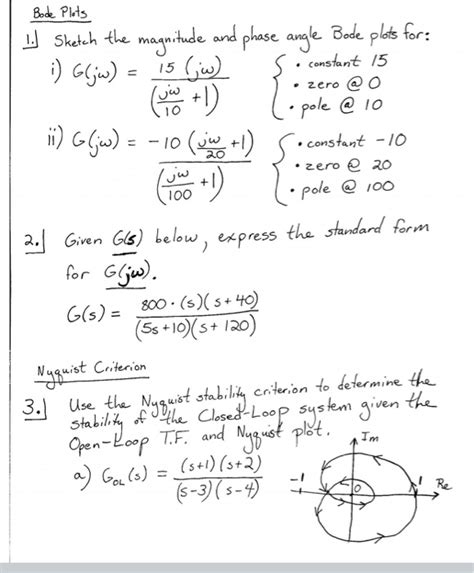 Bode Plots
1. Sketch the magnitude and phase angle Bode plots for:
i) G(jω) = 15 (jω) / (jω/10 + 1) { • constant 15
• zero @ 0
• pole @ 10
ii) G(jω) = -10 (jω/20 + 1) / (jω/100 + 1) { • constant -10
• zero @ 20
• pole @ 100
2. Given G(s) below, express the standard form
for G(jω).
G(s) = 800 · (s)(s + 40) / (5s + 10)(s + 120)
Nyquist Criterion
3. Use the Nyquist stability criterion to determine the
stability of the Closed-Loop system given the
Open-Loop T.F. and Nyquist plot.
a) G_OL(s) = (s+1)(s+2) / (s-3)(s-4)
Im
-1 0 1 Re